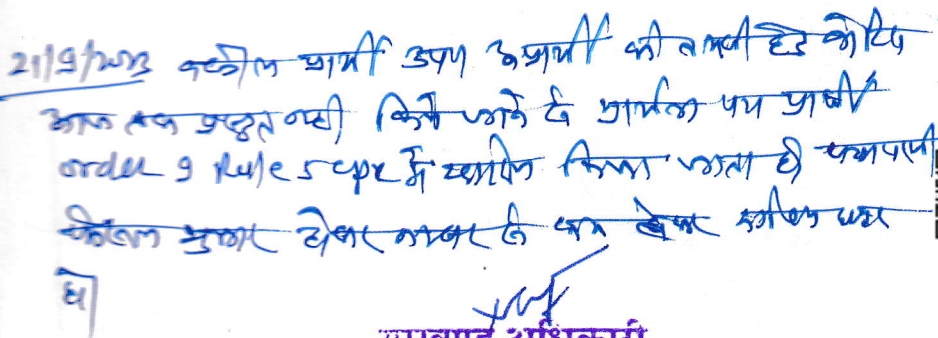 21/9/2023 वकील प्रार्थी उप० अप्रार्थी की तलबी हेतु नोटिस
आज तक प्रस्तुत नही किये जाने से प्रार्थना पत्र प्रार्थी
order 9 Rule 5 cpc में खारीज किया जाता है पत्रावली
फैसल शुमार होकर नम्बर से कम होकर दाखिल दफ्तर
हो
उपखण्ड अधिकारी